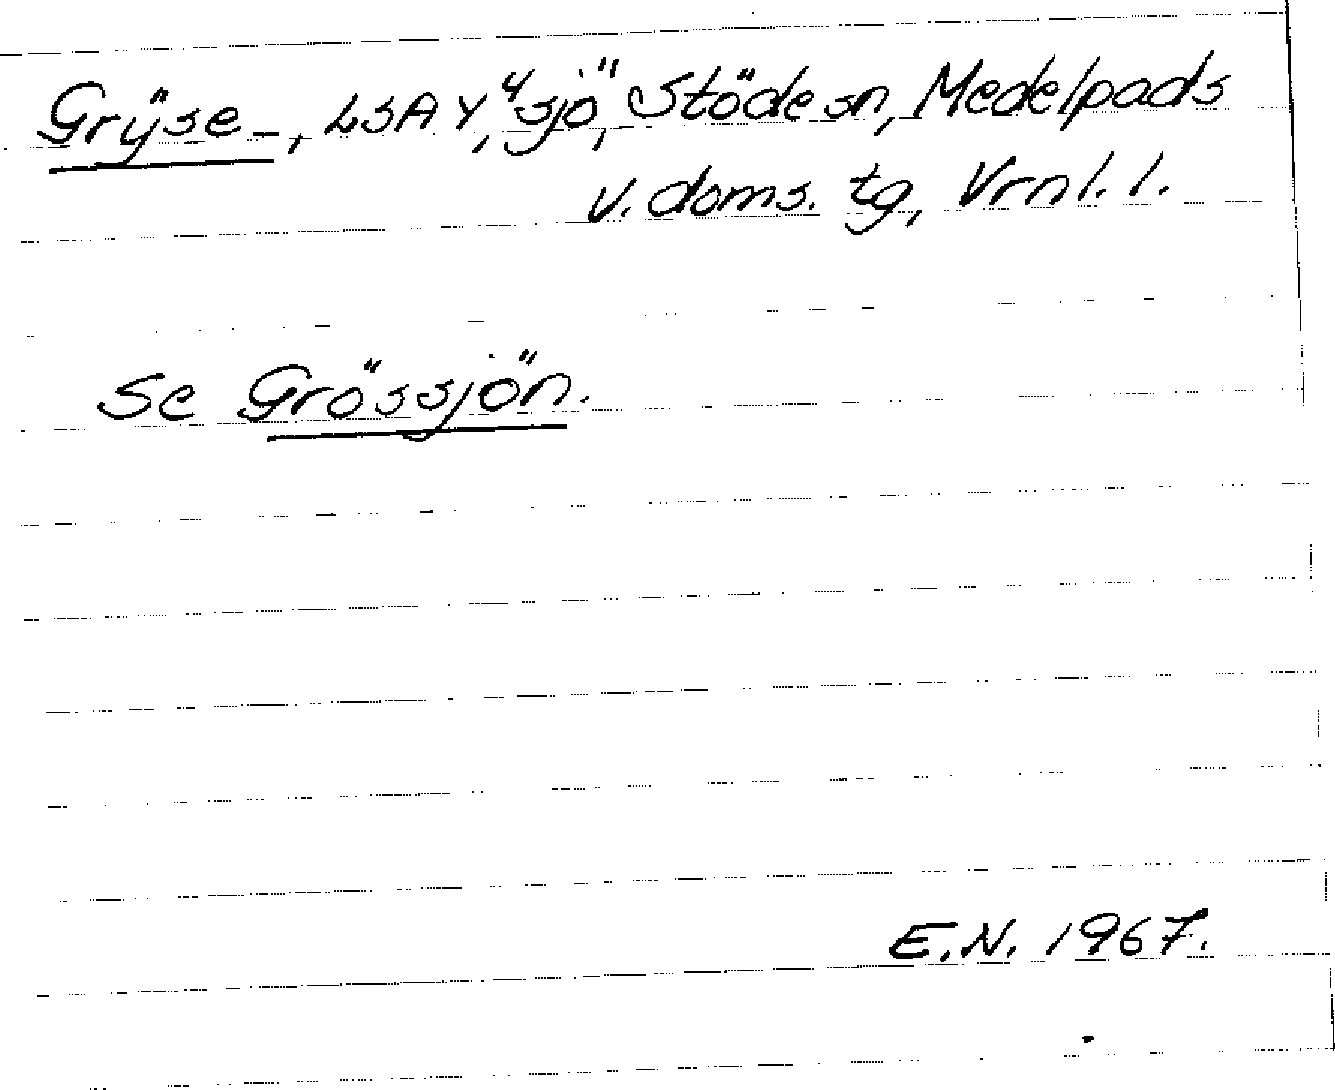 Grÿse-, LSA Y, "sjö", Stöde sn, Medelpads
v. doms. tg, Vrnl. l.
Se Grössjön.
E.N. 1967.